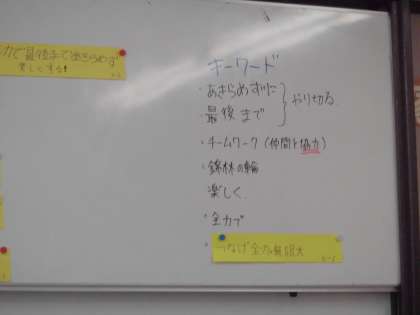 力で最後まであきらめず
楽しくする!
キーワード
・あきらめずに
・最後まで
やり切る
・チームワーク(仲間と協力)
・錦林の輪
楽しく
・全力で
つなげ全力無限大